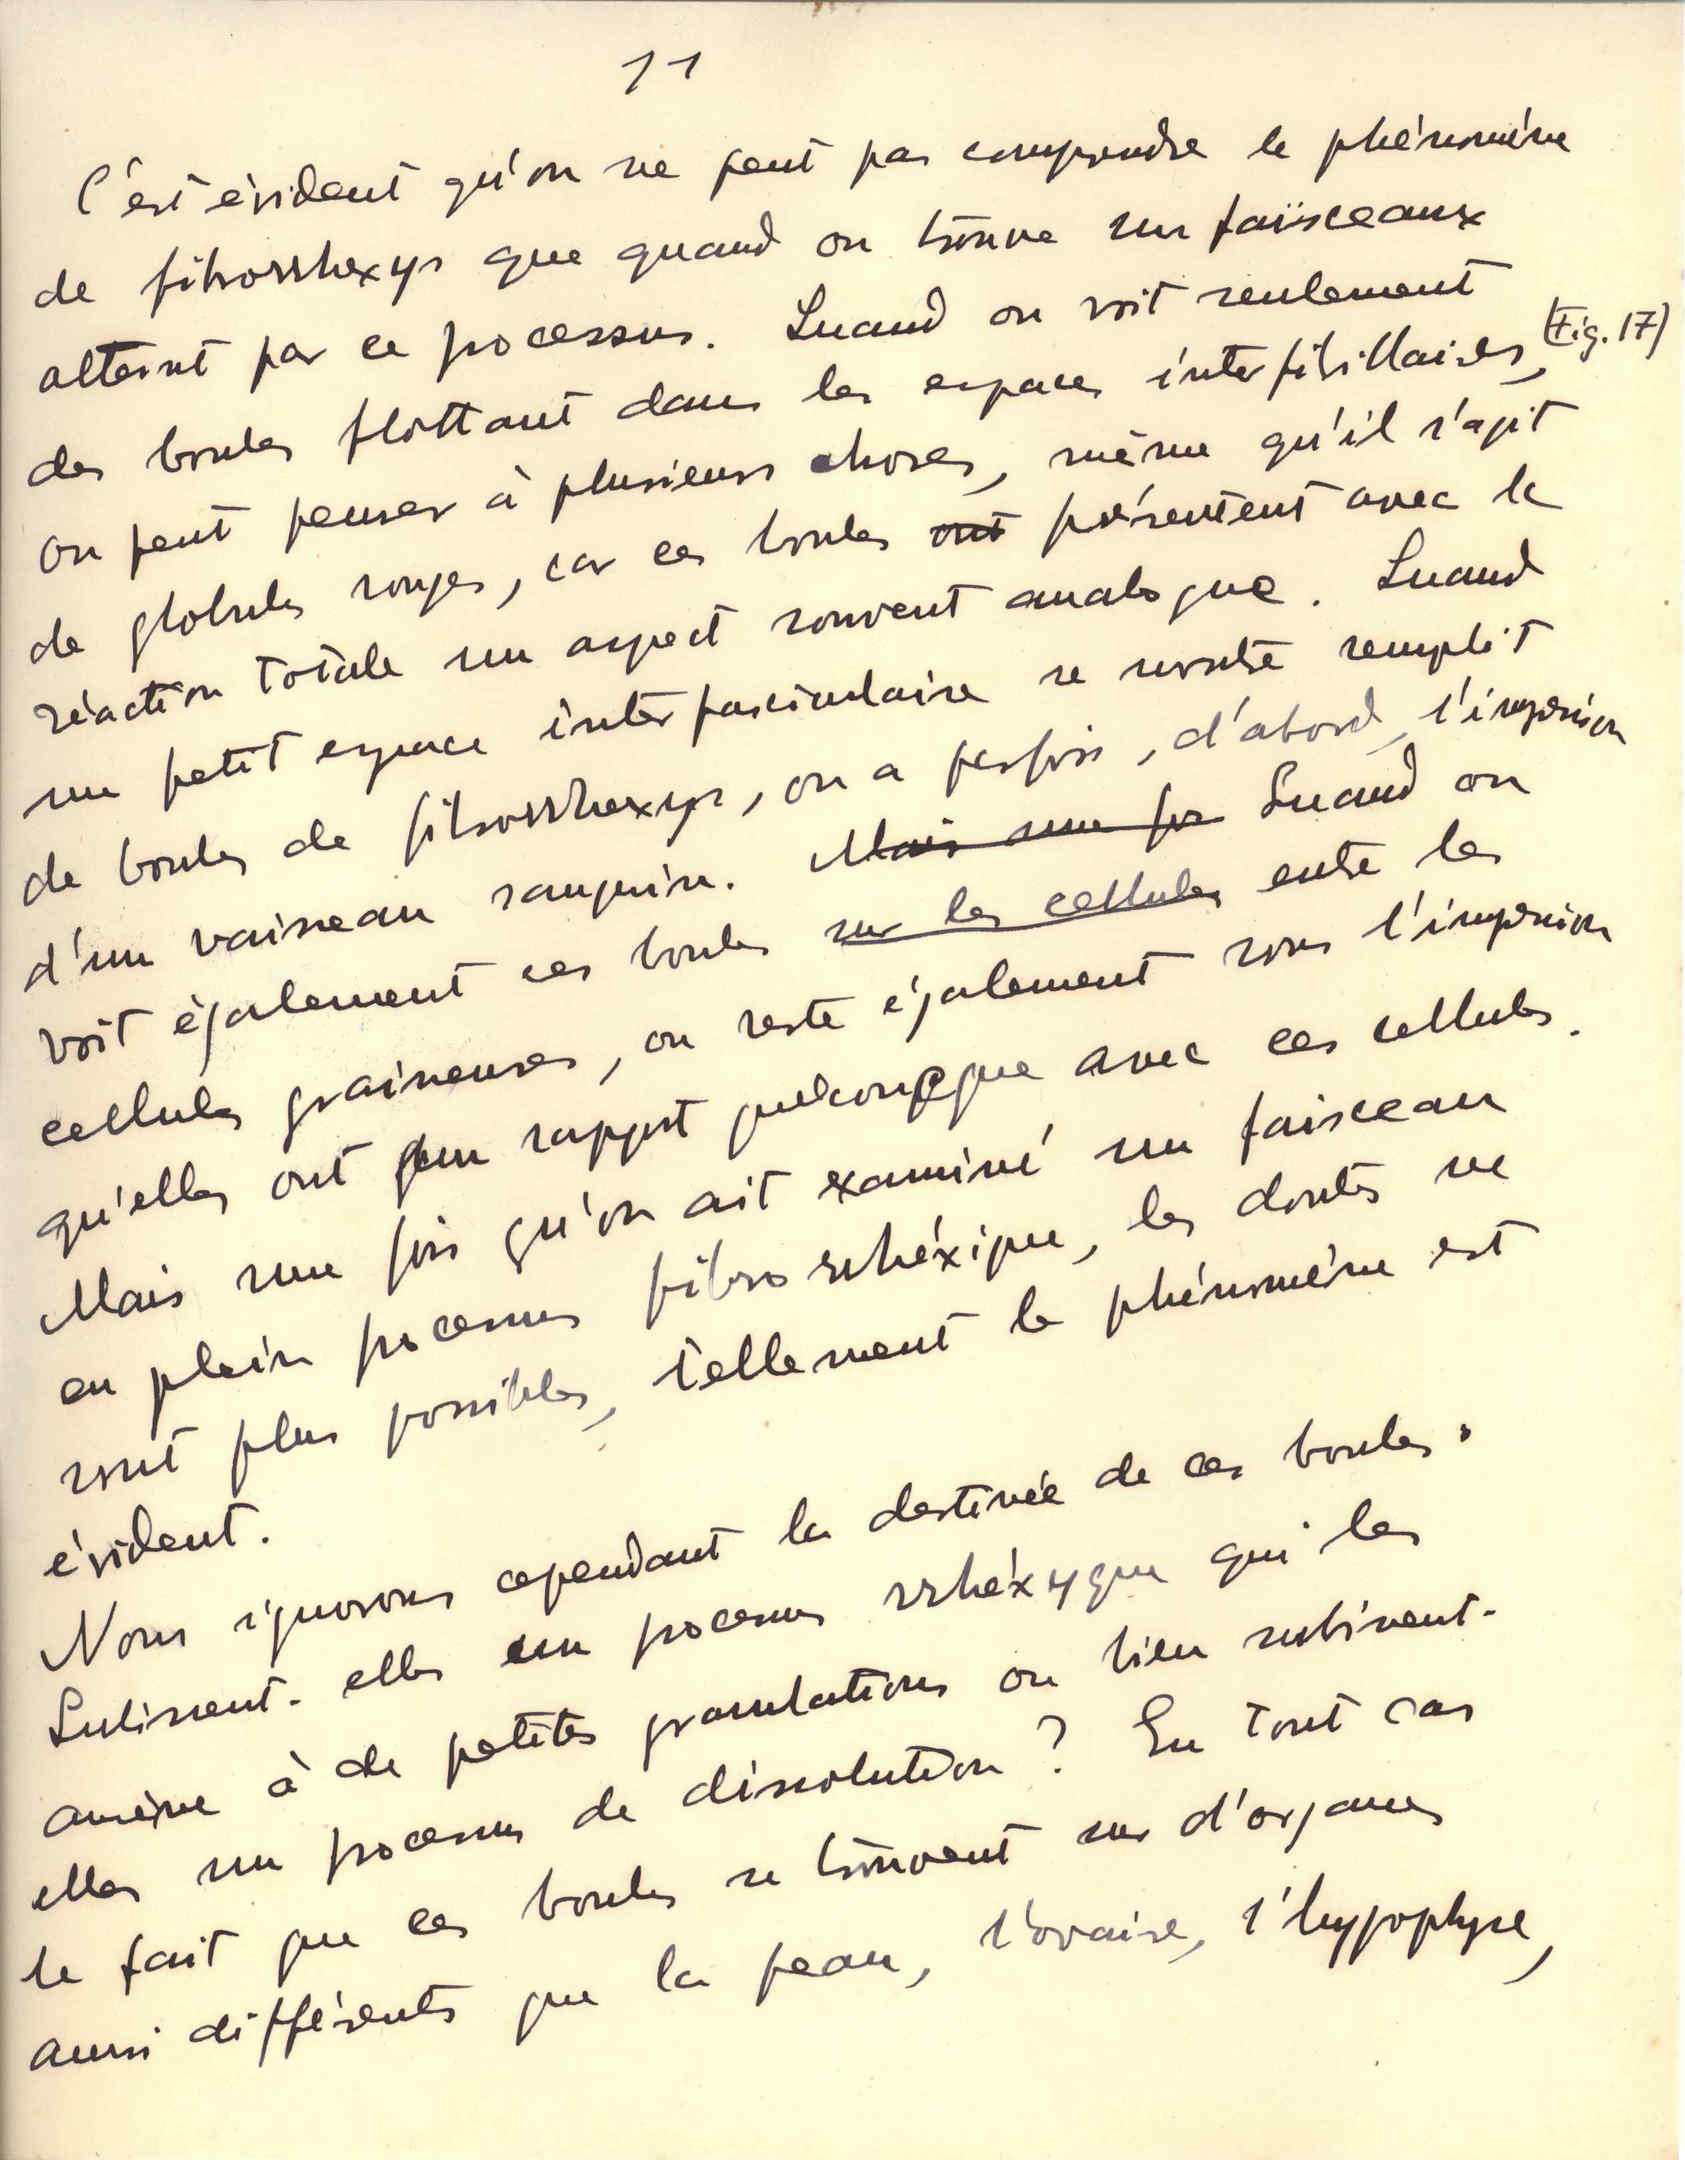 11
C'est évident qu'on ne peut pas comprendre le phénomène
de fibrorrhexys que quand on trouve un faisceaux
atteint par ce processus. Quand on voit seulement
des boules flottant dans les espaces interfibrillaires, (Fig. 17)
on peut penser à plusieurs choses, même qu'il s'agit
de globules rouges, car ces boules ont présentent avec la
réaction totale un aspect souvent analogue. Quand
un petit espace interfasciculaire se montre remplit
de boules de fibrorrhexys, on a parfois, d'abord, l'impresion
d'un vaisseau sanguin. Mais une foi Quand on
voit également ces boules sur les cellules entre les
cellules graineuses, on reste également sous l'impresion
qu'elles ont un rapport quelconque avec ces cellules.
Mais une fois qu'on ait examiné un faisceau
en plein processus fibrorrhéxique, les doutes ne
sont plus possibles, tellement le phénomène est
évident.
Nous ignorons cependant la destinée de ces boules.
Subissent-elles un processus rrhéxyque qui les
amène à de petites granulations ou bien subissent-
elles un processus de dissolution? En tout cas
le fait que ces boules se trouvent sur d'organes
aussi différents que la peau, l'ovaire, l'hypophyse,